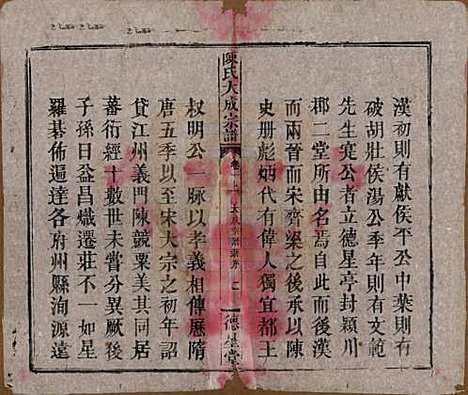 漢初則有獻侯平公中葉則有
破胡壯侯湯公季年則有文範
先生寔公者立德星亭封潁川
郡二堂所由名焉自此而後漢
而兩晉而宋齊梁之後承以陳
史册彪炳代有偉人獨宜都王
陳氏大成宗譜
卷
德星堂
叔明公一脈以孝義相傳歷隋
唐五季以至宋大宗之初年詔
貸江州義門陳競粟美其同居
蕃衍經十數世未嘗分異厥後
子孫日益昌熾遷莊不一如星
羅棊佈遍達各府州縣洵源遠